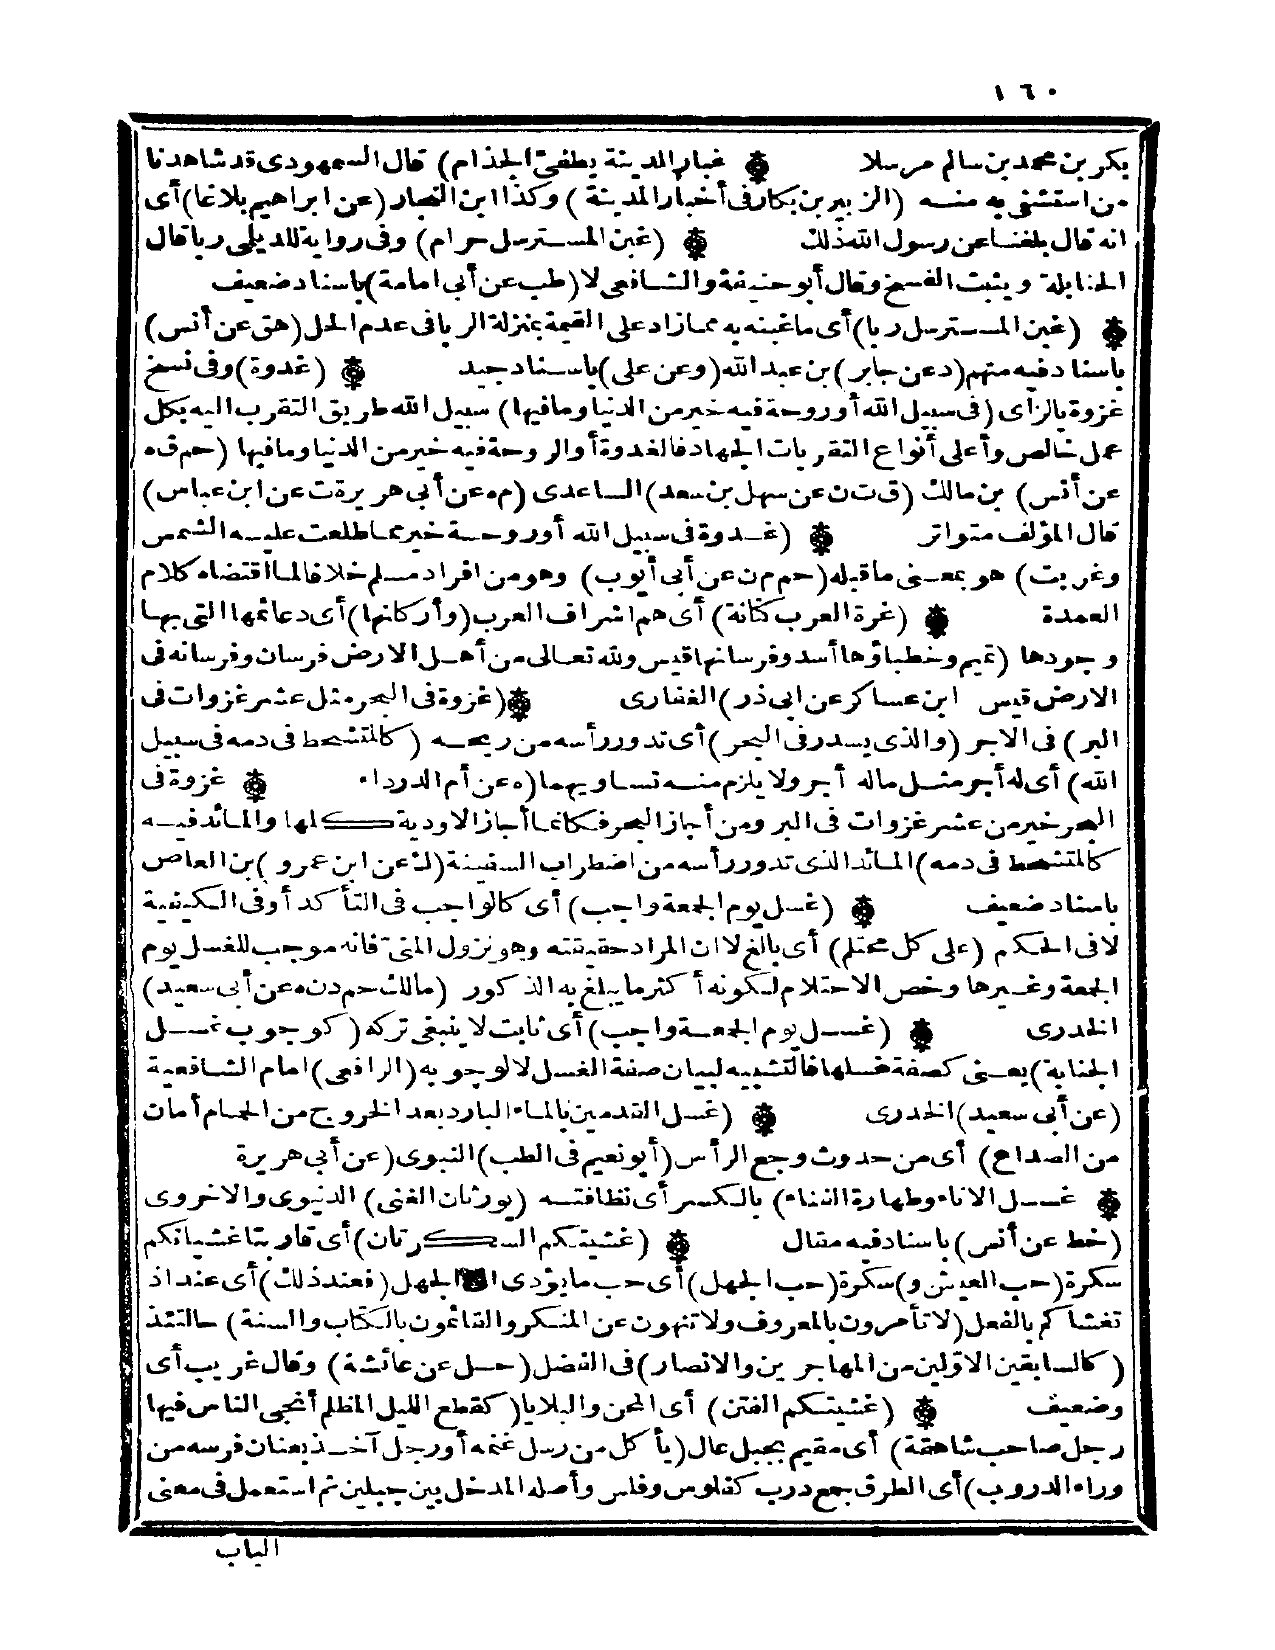 ١٦٠
بكر بن محمد بن سالم مرسلا (غبار المدينة يطفئ الجذام) قال السمهودى قد شاهدنا
من استشفى به منه (الزبير بن بكار فى أخبار المدينة) وكذا ابن النجار (عن ابراهيم بلاغا) أى
انه قال بلغنا عن رسول الله ذلك (غبن المسترسل حرام) وفى رواية للديلمى ربا قال
الحنابلة ويثبت الفسخ وقال أبو حنيفة والشافعى لا (طب عن أبى امامة) باسناد ضعيف
(غبن المسترسل ربا) أى ماغبنه به مما زاد على القيمة بمنزلة الربا فى عدم الحل (هق عن أنس)
باسناد فيه متهم (دعن جابر) بن عبد الله (وعن على) باسناد جيد (غدوة) وفى نسخ
غزوة بالزاى (فى سبيل الله أو روحة فيه خير من الدنيا وما فيها) سبيل الله طريق التقرب اليه بكل
عمل خالص وأعلى أنواع التقربات الجهاد فالغدوة أو الروحة فيه خير من الدنيا وما فيها (حم ق ه
عن أنس) بن مالك (ق ت ن عن سهل بن سعد) الساعدى (م ه عن أبى هريرة ت عن ابن عباس)
قال المؤلف متواتر (غدوة فى سبيل الله أو روحة خير مما طلعت عليه الشمس
وغربت) هو بمعنى ما قبله (حم م ن عن أبى أيوب) وهو من افراد مسلم خلافا لما اقتضاه كلام
العمدة (غرة العرب كنانة) أى هم اشراف العرب (وأركانها) أى دعائمها التى بها
وجودها (تميم وخطباؤها أسد وفرسانها قيس ولله تعالى من أهل الارض فرسان وفرسانه فى
الارض قيس ابن عساكر عن ابى ذر) الغفارى (غزوة فى البحر مثل عشر غزوات فى
البر) فى الاجر (والذى يسدر فى البحر) أى تدور رأسه من ريحه (كالمتشحط فى دمه فى سبيل
الله) أى له أجر مثل ماله أجر ولا يلزم منه تساويهما (ه عن أم الدرداء غزوة فى
البحر خير من عشر غزوات فى البر ومن أجاز البحر فكانما أجاز الاودية كلها والمائد فيه
كالمتشحط فى دمه) المائد الذى تدور رأسه من اضطراب السفينة (ك عن ابن عمرو) بن العاص
باسناد ضعيف (غسل يوم الجمعة واجب) أى كالواجب فى التأكد أو فى الكيفية
لا فى الحكم (على كل محتلم) أى بالغ لا ان المراد حقيقته وهو نزول المنى فانه موجب للغسل يوم
الجمعة وغيرها وخص الاحتلام لكونه أكثر ما يبلغ به الذكور (مالك حم د ن ه عن أبى سعيد)
الخدرى (غسل يوم الجمعة واجب) أى ثابت لا ينبغى تركه (كوجوب غسل
الجنابة) يعنى كصفة غسلها فالتشبيه لبيان صفة الغسل لا لوجوبه (الرافعى) امام الشافعية
(عن أبى سعيد) الخدرى (غسل القدمين بالماء البارد بعد الخروج من الحمام أمان
من الصداع) أى من حدوث وجع الرأس (أبو نعيم فى الطب) النبوى (عن أبى هريرة
غسل الاناء وطهارة الفناء) بالكسر أى نظافته (يورثان الغنى) الدنيوى والاخروى
(خط عن أنس) باسناد فيه مقال (غشيتكم السكرتان) أى قاربتا غشيانكم
سكرة (حب العيش و) سكرة (حب الجهل) أى حب ما يؤدى الى الجهل (فعند ذلك) أى عند اذ
تغشاكم بالفعل (لا تأمرون بالمعروف ولا تنهون عن المنكر والقائمون بالكتاب والسنة) حالتئذ
(كالسابقين الاولين من المهاجرين والانصار) فى الفضل (حل عن عائشة) وقال غريب أى
وضعيف (غشيتكم الفتن) أى المحن والبلايا (كقطع الليل المظلم أنجى الناس فيها
رجل صاحب شاهقة) أى مقيم بجبل عال (يأكل من رسل غنمه أو رجل آخذ بعنان فرسه من
وراء الدروب) أى الطرق جمع درب كفلوس وفلس وأصله المدخل بين جبلين ثم استعمل فى معنى
الباب